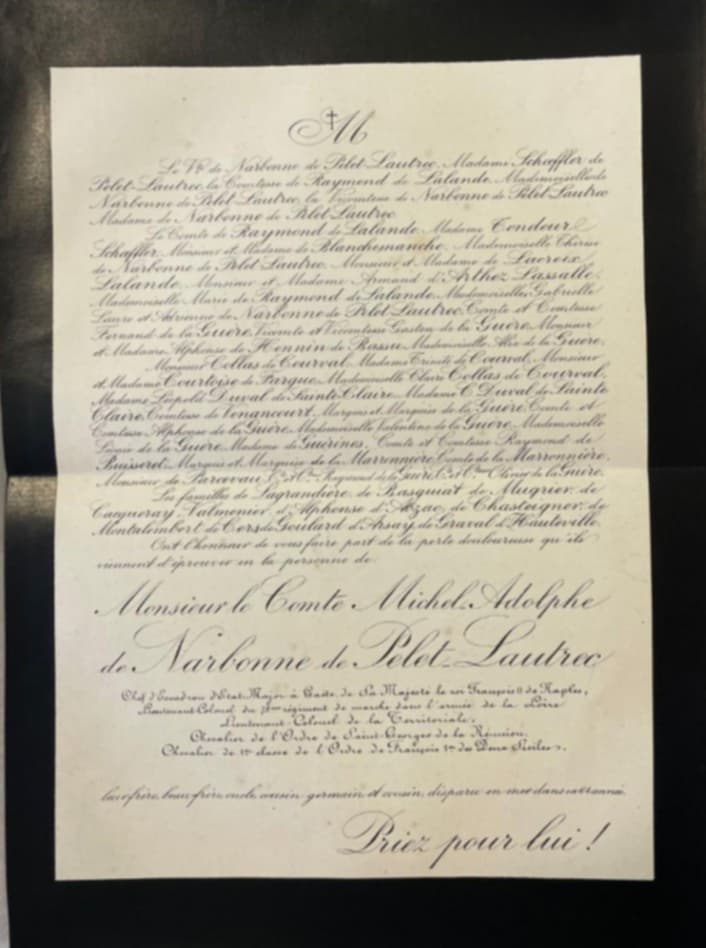 M
Le Vte de Narbonne de Pelet-Lautrec, Madame Schaffler de
Pelet-Lautrec, la Comtesse de Raymond de Lalande, Mademoiselle de
Narbonne de Pelet-Lautrec, la Vicomtesse de Narbonne de Pelet-Lautrec
Madame de Narbonne de Pelet-Lautrec
Le Comte de Raymond de Lalande, Madame Tondeur
Schaffler, Monsieur et Madame de Blanchemanche, Mademoiselle Thérèse
de Narbonne de Pelet-Lautrec, Monsieur et Madame de Lacroix
Lalande, Monsieur et Madame Armand d'Arthez Lassalle,
Mademoiselle Marie de Raymond de Lalande, Mesdemoiselles Gabrielle
Laure et Adrienne de Narbonne de Pelet-Lautrec, Comte et Comtesse
Fernand de la Guère, Vicomte et Vicomtesse Gaston de la Guère, Monsieur
et Madame Alphonse de Hennin de Bossu, Mademoiselle Alix de la Guère,
Monsieur Collas de Courval, Madame Trinité de Courval, Monsieur
et Madame Courtoise de Parque, Mademoiselle Claire Collas de Courval,
Madame Léopold Duval de Sainte Claire, Madame C. Duval de Sainte
Claire, Comtesse de Venancourt, Marquis et Marquise de la Guère, Comte et
Comtesse Alphonse de la Guère, Mademoiselle Valentine de la Guère, Mademoiselle
de la Guère, Madame de Guérines, Comte et Comtesse Raymond de
Buisseret, Marquis et Marquise de la Marronnière, Comte de la Marronnière,
Monsieur de Parcevau, Cte et Ctesse Raymond de la Guère, Cte et Ctesse Olivier de la Guère.
Les familles de Lagrandière, de Rasquiat de Mugriet, de
Carqueray-Valmenier, d'Alphonse d'Abzac, de Chasteigner, de
Montalembert de Cers, de Goulard d'Arsay, de Graval d'Hauteville.
Ont l'honneur de vous faire part de la perte douloureuse qu'ils
viennent d'éprouver en la personne de
Monsieur le Comte Michel-Adolphe
de Narbonne de Pelet-Lautrec
Chef d'Escadron d'État-Major à Gaëte de Sa Majesté le roi François II de Naples,
Lieutenant-Colonel du régiment de marche dans l'armée de la Loire
Lieutenant-Colonel de la Territoriale,
Chevalier de l'Ordre de Saint-Georges de la Réunion,
Chevalier de 1re classe de l'Ordre de François 1er des Deux Siciles,
leur frère, beau-frère, oncle, cousin-germain et cousin, disparu en mer dans sa année.
Priez pour lui !